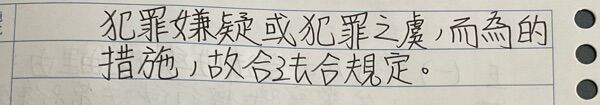 犯罪嫌疑或犯罪之虞,而為的
措施,故合法合規定。